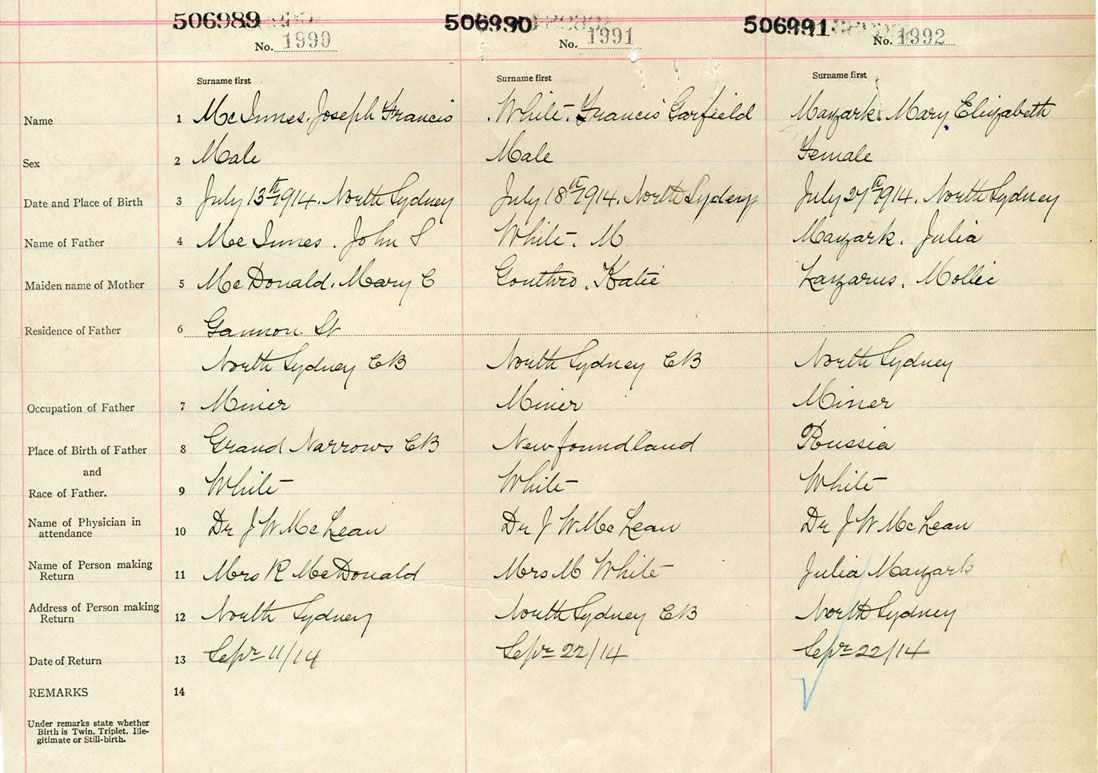 506989 506990 506991
No. 1990 No. 1991 No. 1992
Surname first Surname first Surname first
Name 1 McInnes, Joseph Francis White, Francis Garfield Mayzark, Mary Elizabeth
Sex 2 Male Male Female
Date and Place of Birth 3 July 13th 1914. North Sydney July 18th 1914. North Sydney July 27th 1914. North Sydney
Name of Father 4 McInnes, John S White, M Mayzark, Julia
Maiden name of Mother 5 McDonald, Mary C Gouthro, Katie Lazarus, Mollie
Residence of Father 6 Gannon St
North Sydney CB North Sydney CB North Sydney
Occupation of Father 7 Miner Miner Miner
Place of Birth of Father 8 Grand Narrows CB Newfoundland Russia
and
Race of Father. 9 White White White
Name of Physician in
attendance 10 Dr J W McLean Dr J W McLean Dr J W McLean
Name of Person making
Return 11 Mrs R McDonald Mrs M White Julia Mayzark
Address of Person making
Return 12 North Sydney North Sydney CB North Sydney
Date of Return 13 Sepr 11/14 Sepr 22/14 Sepr 22/14
REMARKS 14
Under remarks state whether
Birth is Twin, Triplet, Ille-
gitimate or Still-birth.